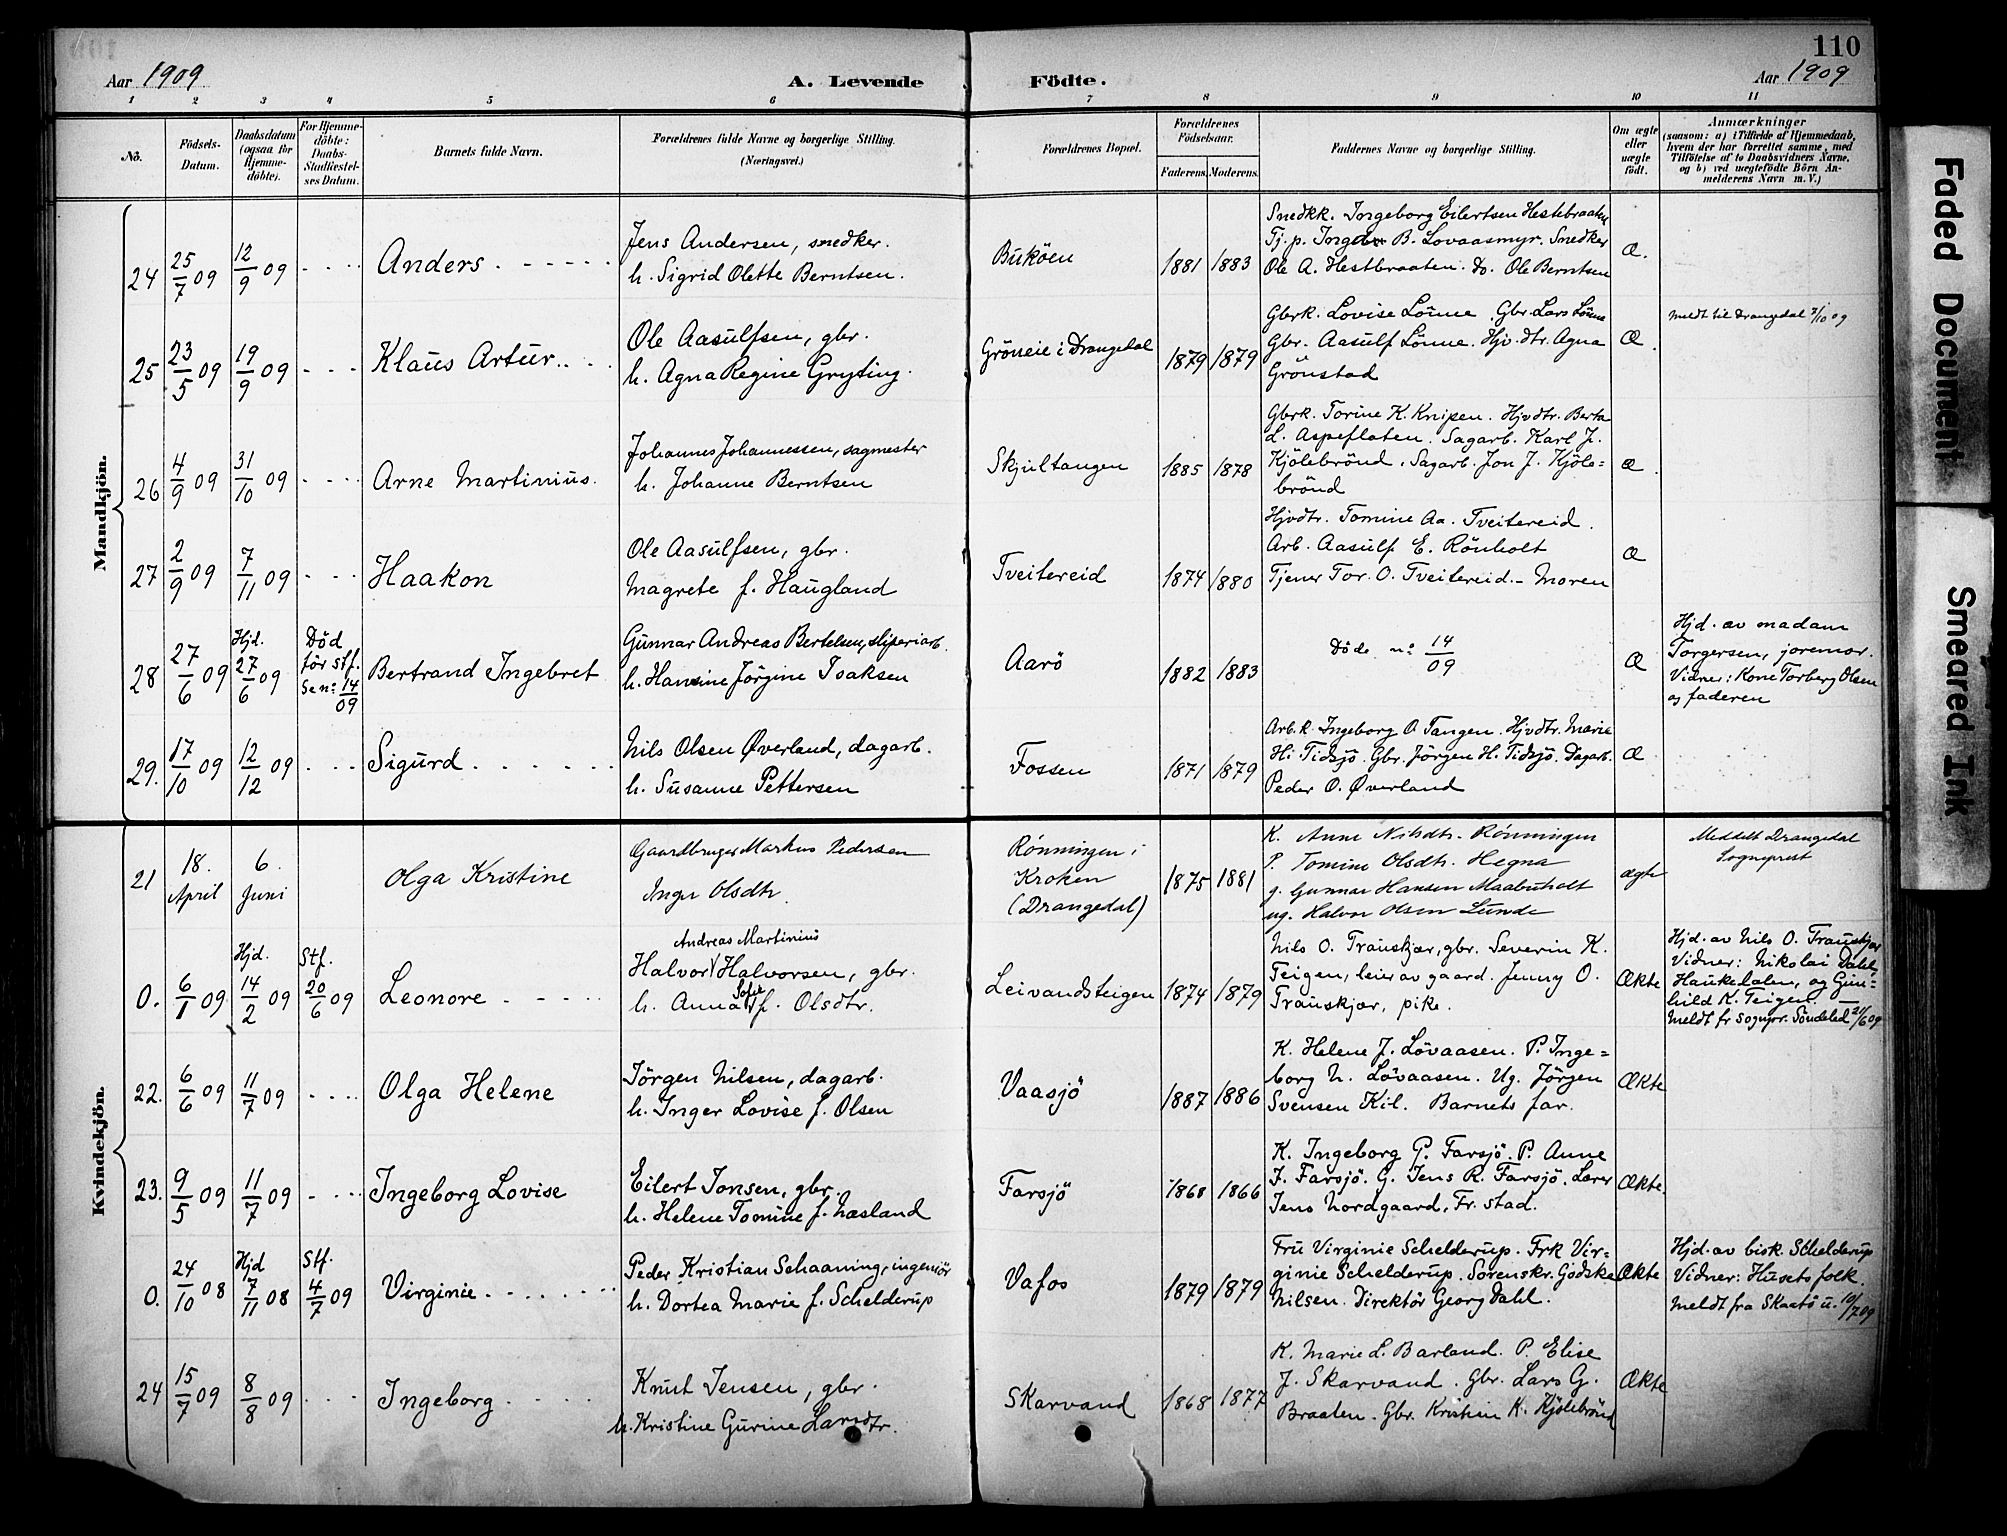 110
Aar 1909
A. Levende
Födte.
Aar 1909
1 2 3 4 5 6 7 8 9 10 11
No.
Födsels-
Datum.
Daabsdatum
(ogsaa for
Hjemme-
döbte).
For Hjemme-
döbte:
Daabs-
Stadfæstel-
ses Datum.
Barnets fulde Navn.
Forældrenes fulde Navne og borgerlige Stilling.
(Næringsvei.)
Forældrenes Bopæl.
Forældrenes
Födselsaar.
Faderens. Moderens.
Faddernes Navne og borgerlige Stilling.
Om ægte
eller
uægte
födt.
Anmærkninger
(saasom: a) i Tilfælde af Hjemmedaab,
hvem der har forrettet samme, med
Tilföielse af to Daabsvidners Navne,
og b) ved uægtefödte Börn An-
melderens Navn m. V.)
Mandkjön.
24
25/7 09
12/9 09
Anders
Jens Andersen, snedker.
h. Sigrid Olette Berntsen.
Buköen
1881 1883
Snedkk. Ingeborg Eilertsen Hestbraaten
Tj. p. Ingebr B. Lovaasmyr. Snedker
Ole A. Hestbraaten. Do. Ole Berntsen
Æ.
25
23/5 09
19/9 09
Klaus Artur
Ole Aasulfsen, gbr.
h. Agna Regine Gryting.
Gröneie i Drangedal
1879 1879
Gbrk. Lovise Lönne. Gbr. Lars Lönne
Gbr. Aasulf Lönne. Hjv. dtr. Agna
Grönstad
Æ.
Meldt til Drangedal 7/10 09
26
4/9 09
31/10 09
Arne Martinius.
Johannes Johannessen, sagmester
h. Johanne Berntsen
Skjultangen
1885 1878
Gbrk. Torine K. Knipen. Hjvdtr. Berta
L. Aspeflaten. Sagarb. Karl J.
Kjölebrönd. Sagarb. Jon J. Kjöle=
brönd
Æ.
27
2/9 09
7/11 09
Haakon
Ole Aasulfsen, gbr.
Magrete f. Haugland
Tveitereid
1874 1880
Hjvdtr. Tomine Aa. Tveitereid.
Arb. Aasulf E. Rönholt
Tjener Tor. O. Tveitereid. - Moren
Æ
28
27/6 09
Hjd.
27/6 09
Död
för stf.
Se no: 14/09
Bertrand Ingebret
Gunnar Andreas Bertelsen, sliperiarb.
h. Hansine Jörgine Isaksen
Aarö
1882 1883
Döde no: 14/09
Æ
Hjd. av madam
Torgersen, jormor.
Vidner: Kone Torberg Olsen
og faderen
29.
17/10 09
12/12 09
Sigurd
Nils Olsen Øverland, dagarb.
h. Susanne Pettersen
Fossen
1871 1879
Arb.k. Ingeborg O Tangen. Hjvdtr. Marie
H. Tidsjö. Gbr. Jörgen H. Tidsjö. Dagarb.
Peder O. Øverland
Æ
Kvindekjön.
21
18.
April
6.
Juni
Olga Kristine
Gaardbruger Markus Pedersen
Inger Olsdtr.
Rönningen i
Kroken
(Drangedal)
1875 1881
K. Anne Nilsdtr. Rönningen
P. Tomine Olsdtr. Hegna
g. Gunnar Hansen Maabuholt
ug. Halvor Olsen Lunde
ægte
Meddelt Drangedal
Sogneprest
0.
6/1 09
Hjd.
14/2 09
Stf.
20/6 09
Leonore
Andreas Martinius
Halvor Halvorsen, gbr.
h. Anna Sofie f. Olsdtr.
Leivandsteigen
1874 1879
Nils O. Trauskjær, gbr. Severin K.
Teigen, leier av gaard. Jenny O.
Trauskjær, pike.
Ækte
Hjd. av Nils O. Trauskjær
Vidner: Nikolai Dahl,
Haukedalen, og Gun=
hild K. Teigen.
Meldt fr sognpr. Söndeled 21/6 09
22.
6/6 09
11/7 09
Olga Helene
Jörgen Nilsen, dagarb.
h. Inger Lovise f. Olsen
Vaasjö
1887 1886
K. Helene J. Lövaasen. P. Inge=
borg N. Lövaasen. Ug. Jörgen
Svensen Kil. Barnets far.
Ækte
23.
9/5 09
11/7 09
Ingeborg Lovise
Eilert Jonsen, gbr.
h. Helene Tomine f. Næsland
Farsjö
1868 1866
K. Ingeborg P. Farsjö. P. Anne
J. Farsjö. G. Jens R. Farsjö. Lærer
Jens Nordgaard, Fr. stad.
Ækte.
0.
24/10 08
Hjd
7/11 08
Stf.
4/7 09
Virginie
Peder Kristian Schaaning, ingeniör
h. Dortea Marie f. Schelderup
Vafos
1879 1879
Fru Virginie Schelderup. Frk Vir=
ginie Schelderup. Sorenskr. Godske
Nilsen. Direktör Georg Dahl.
Ækte
Hjd. av bisk. Schelderup
Vidner: Husets folk.
Meldt fra Skaatö u. 10/7 09
24
15/7 09
8/8 09
Ingeborg
Knut Jensen, gbr.
h. Kristine Gurine Larsdtr.
Skarvand
1868 1877
K. Marie L. Barland. P. Elise
J. Skarvand. Gbr. Lars G.
Braaten. Gbr. Kristen K. Kjölebrönd
Ækte
Faded Document
Smeared Ink